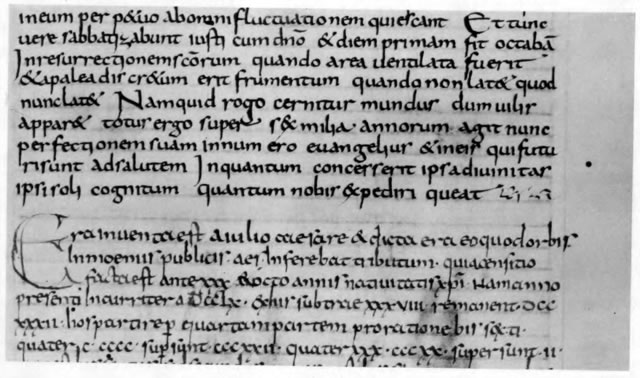 ineum per p&uo ab omni fluctuatione quiescant Et tunc
uere sabbatizabunt iusti cum dno & diem primam fit octabā
In resurrectionem scōrum quando area uentilata fuerit
& apalea discr&um erit frumentum quando non lat& quod
nunc lat& Namquid rogo cernitur mundus dum uilis
appar& totus ergo super s& milia annorum agit nunc
perfectionem suam in numero euangelius & ineis qui futu
ri sunt ad salutem Inquantum concesserit ipsa diuinitas
ipsi soli cognitum quantum nobis &pediri queat
Era inuenta est a iulio caesare & dicta era eo quod orbis
In moenus publicis aes inferebat tributum
facta est ante xxx & octo annis natiuitatis xp̄i Nam anno
presenti Incurrit era DCCLXX. &his subtrae xxxuiii. remanent DCC
xxxii. hos partire p quartam partem pro ratione bis s&i.
quater c. cccc supsunt. cccxxii. quater xxx. cccxx. supersunt. ii.